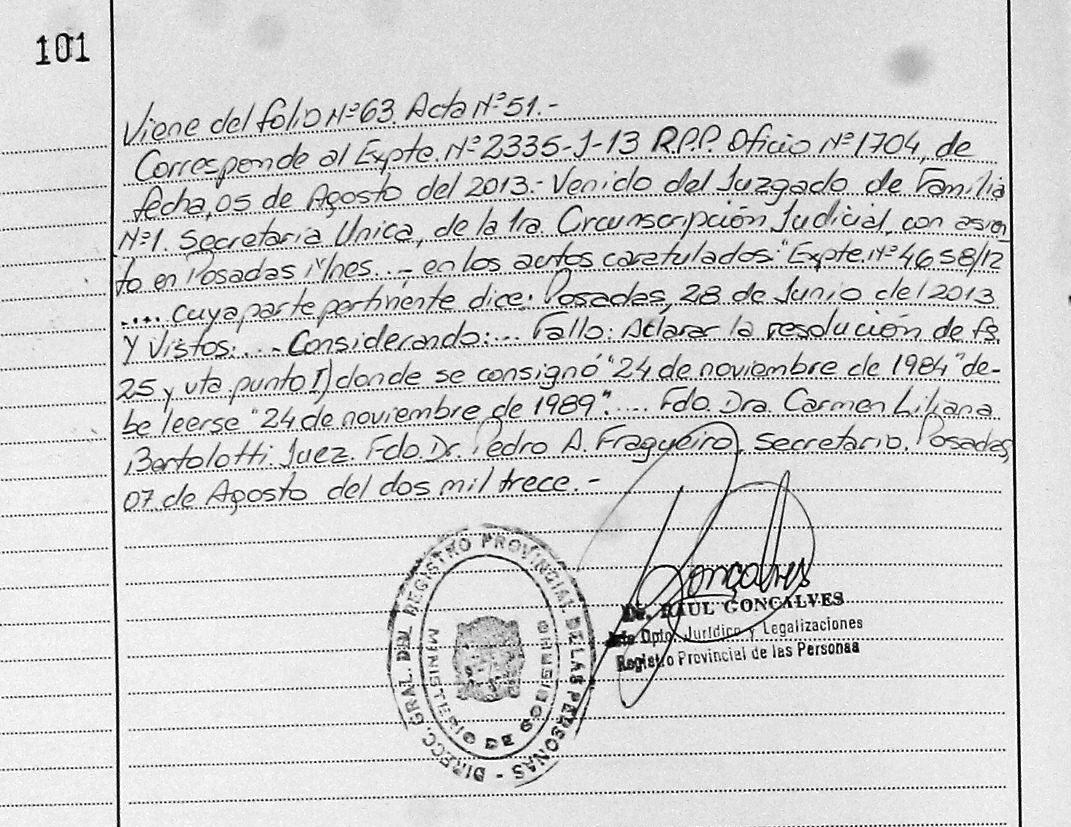 101
Viene del folio Nº 63. Acta Nº 51.-
Corresponde al Expte. Nº 2335-J-13 R.P.P. Oficio Nº 1704, de
fecha, 05 de Agosto del 2013.- Venido del Juzgado de Familia
Nº 1. Secretaria Unica, de la 1ra Circunscripción Judicial, con asien
to en Posadas Mnes... - en los autos caratulados "Expte. Nº 4658/12
.... cuya parte pertinente dice: Posadas, 28 de Junio del 2013
Y Vistos: .... Considerando: ... Fallo: Aclarar la resolución de fs.
25 y vta punto I) donde se consignó "24 de noviembre de 1984" de-
be leerse "24 de noviembre de 1989". .... Fdo. Dra. Carmen Liliana
Bertolotti Juez. Fdo. Dr. Pedro A. Fragueiro, Secretario. Posadas,
07 de Agosto del dos mil trece.-
Goncalves
Dr. RAUL GONCALVES
Jefe Dpto. Jurídico y Legalizaciones
Registro Provincial de las Personas
DIRECC. GRAL. DEL REGISTRO PROVINCIAL DE LAS PERSONAS -
MINISTERIO DE GOBIERNO